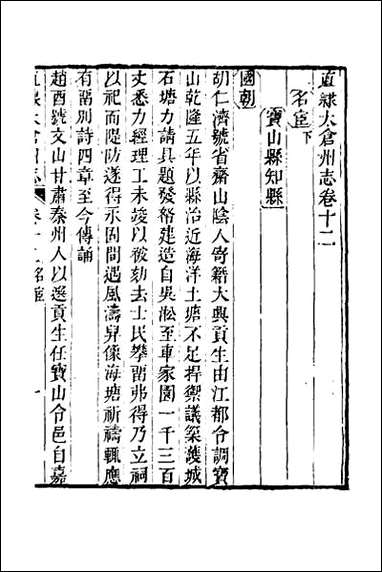 直隸太倉州志卷十二
名宦下
寶山縣知縣
國朝
胡仁濟號省齋山陰人寄籍大興貢生由江都令調寶
山乾隆五年以縣治近海洋土塘不足捍禦議築護城
石塘力請具題發帑建造自吳淞至車家園一千三百
丈悉力經理工未竣以被劾去士民攀留弗得乃立祠
以祀而隄防遂得永固間遇風濤舁像海塘祈禱輒應
有留別詩四章至今傳誦
趙酉號文山甘肅秦州人以選貢生任寶山令邑自嘉
直隸太倉州志 卷十二名宦 一